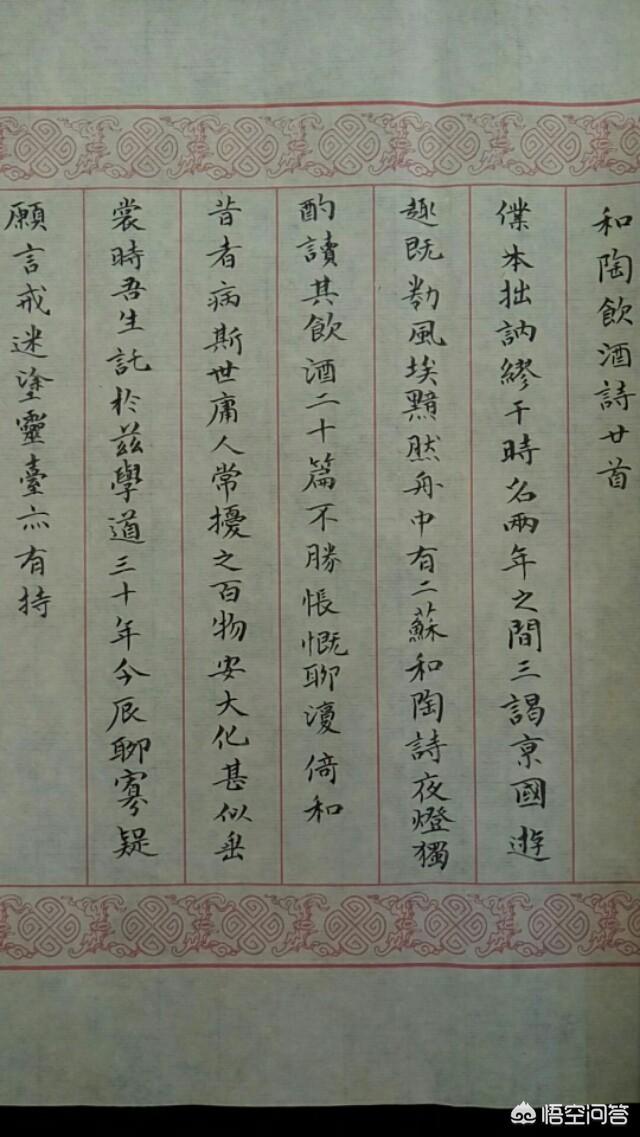 和陶飲酒詩廿首
僕本拙訥繆干時名兩年之間三謁京國遊
趣既勌風埃黯然舟中有二蘇和陶詩夜燈獨
酌讀其飲酒二十篇不勝悵慨聊復倚和
昔者病斯世庸人常擾之百物安大化甚似垂
裳時吾生託於兹學道三十年今辰聊寡疑
願言戒迷塗靈臺亦有持
悟空问答